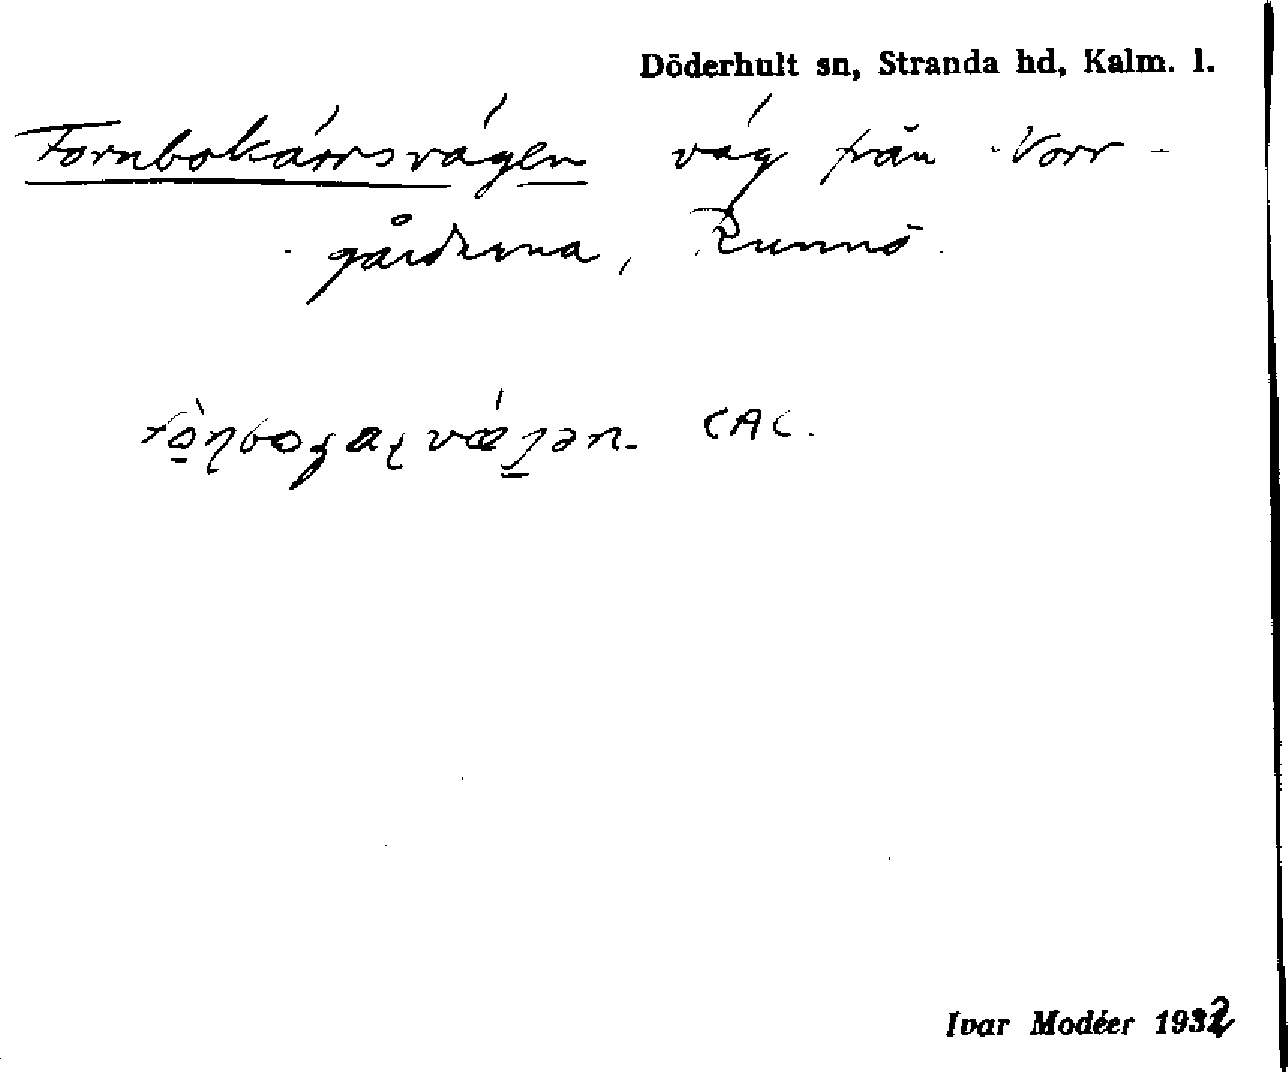 Döderhult sn, Stranda hd, Kalm. l.
Tornbokärrsvägen väg från Norr-
gårdarna, Runnö.
CAC.
Ivar Modéer 1932